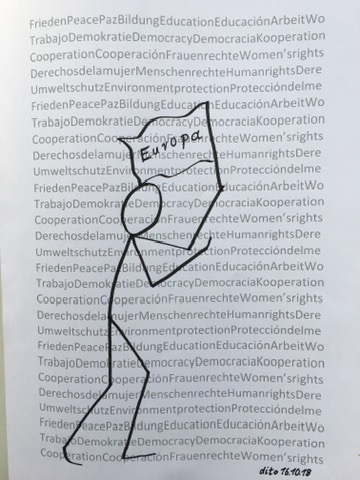 FriedenPeacePazBildungEducationEducaciónArbeitWo
TrabajoDemokratieDemocracyDemocraciaKooperation
CooperationCooperaciónFrauenrechteWomen'srights
DerechosdelamujerMenschenrechteHumanrightsDere
UmweltschutzEnvironmentprotectionProteccióndelme
FriedenPeacePazBildungEducationEducaciónArbeitWo
TrabajoDemokratieDemocracyDemocraciaKooperation
CooperationCooperaciónFrauenrechteWomen'srights
Europa
DerechosdelamujerMenschenrechteHumanrightsDere
UmweltschutzEnvironmentprotectionProteccióndelme
FriedenPeacePazBildungEducationEducaciónArbeitWo
TrabajoDemokratieDemocracyDemocraciaKooperation
CooperationCooperaciónFrauenrechteWomen'srights
DerechosdelamujerMenschenrechteHumanrightsDere
UmweltschutzEnvironmentprotectionProteccióndelme
FriedenPeacePazBildungEducationEducaciónArbeitWo
TrabajoDemokratieDemocracyDemocraciaKooperation
CooperationCooperaciónFrauenrechteWomen'srights
DerechosdelamujerMenschenrechteHumanrightsDere
UmweltschutzEnvironmentprotectionProteccióndelme
FriedenPeacePazBildungEducationEducaciónArbeitWo
TrabajoDemokratieDemocracyDemocraciaKooperation
CooperationCooperaciónFrauenrechteWomen'srights
DerechosdelamujerMenschenrechteHumanrightsDere
UmweltschutzEnvironmentprotectionProteccióndelme
FriedenPeacePazBildungEducationEducaciónArbeitWo
TrabajoDemokratieDemocracyDemocraciaKooperation
CooperationCooperaciónFrauenrechteWomen'srights
dito 16.10.18